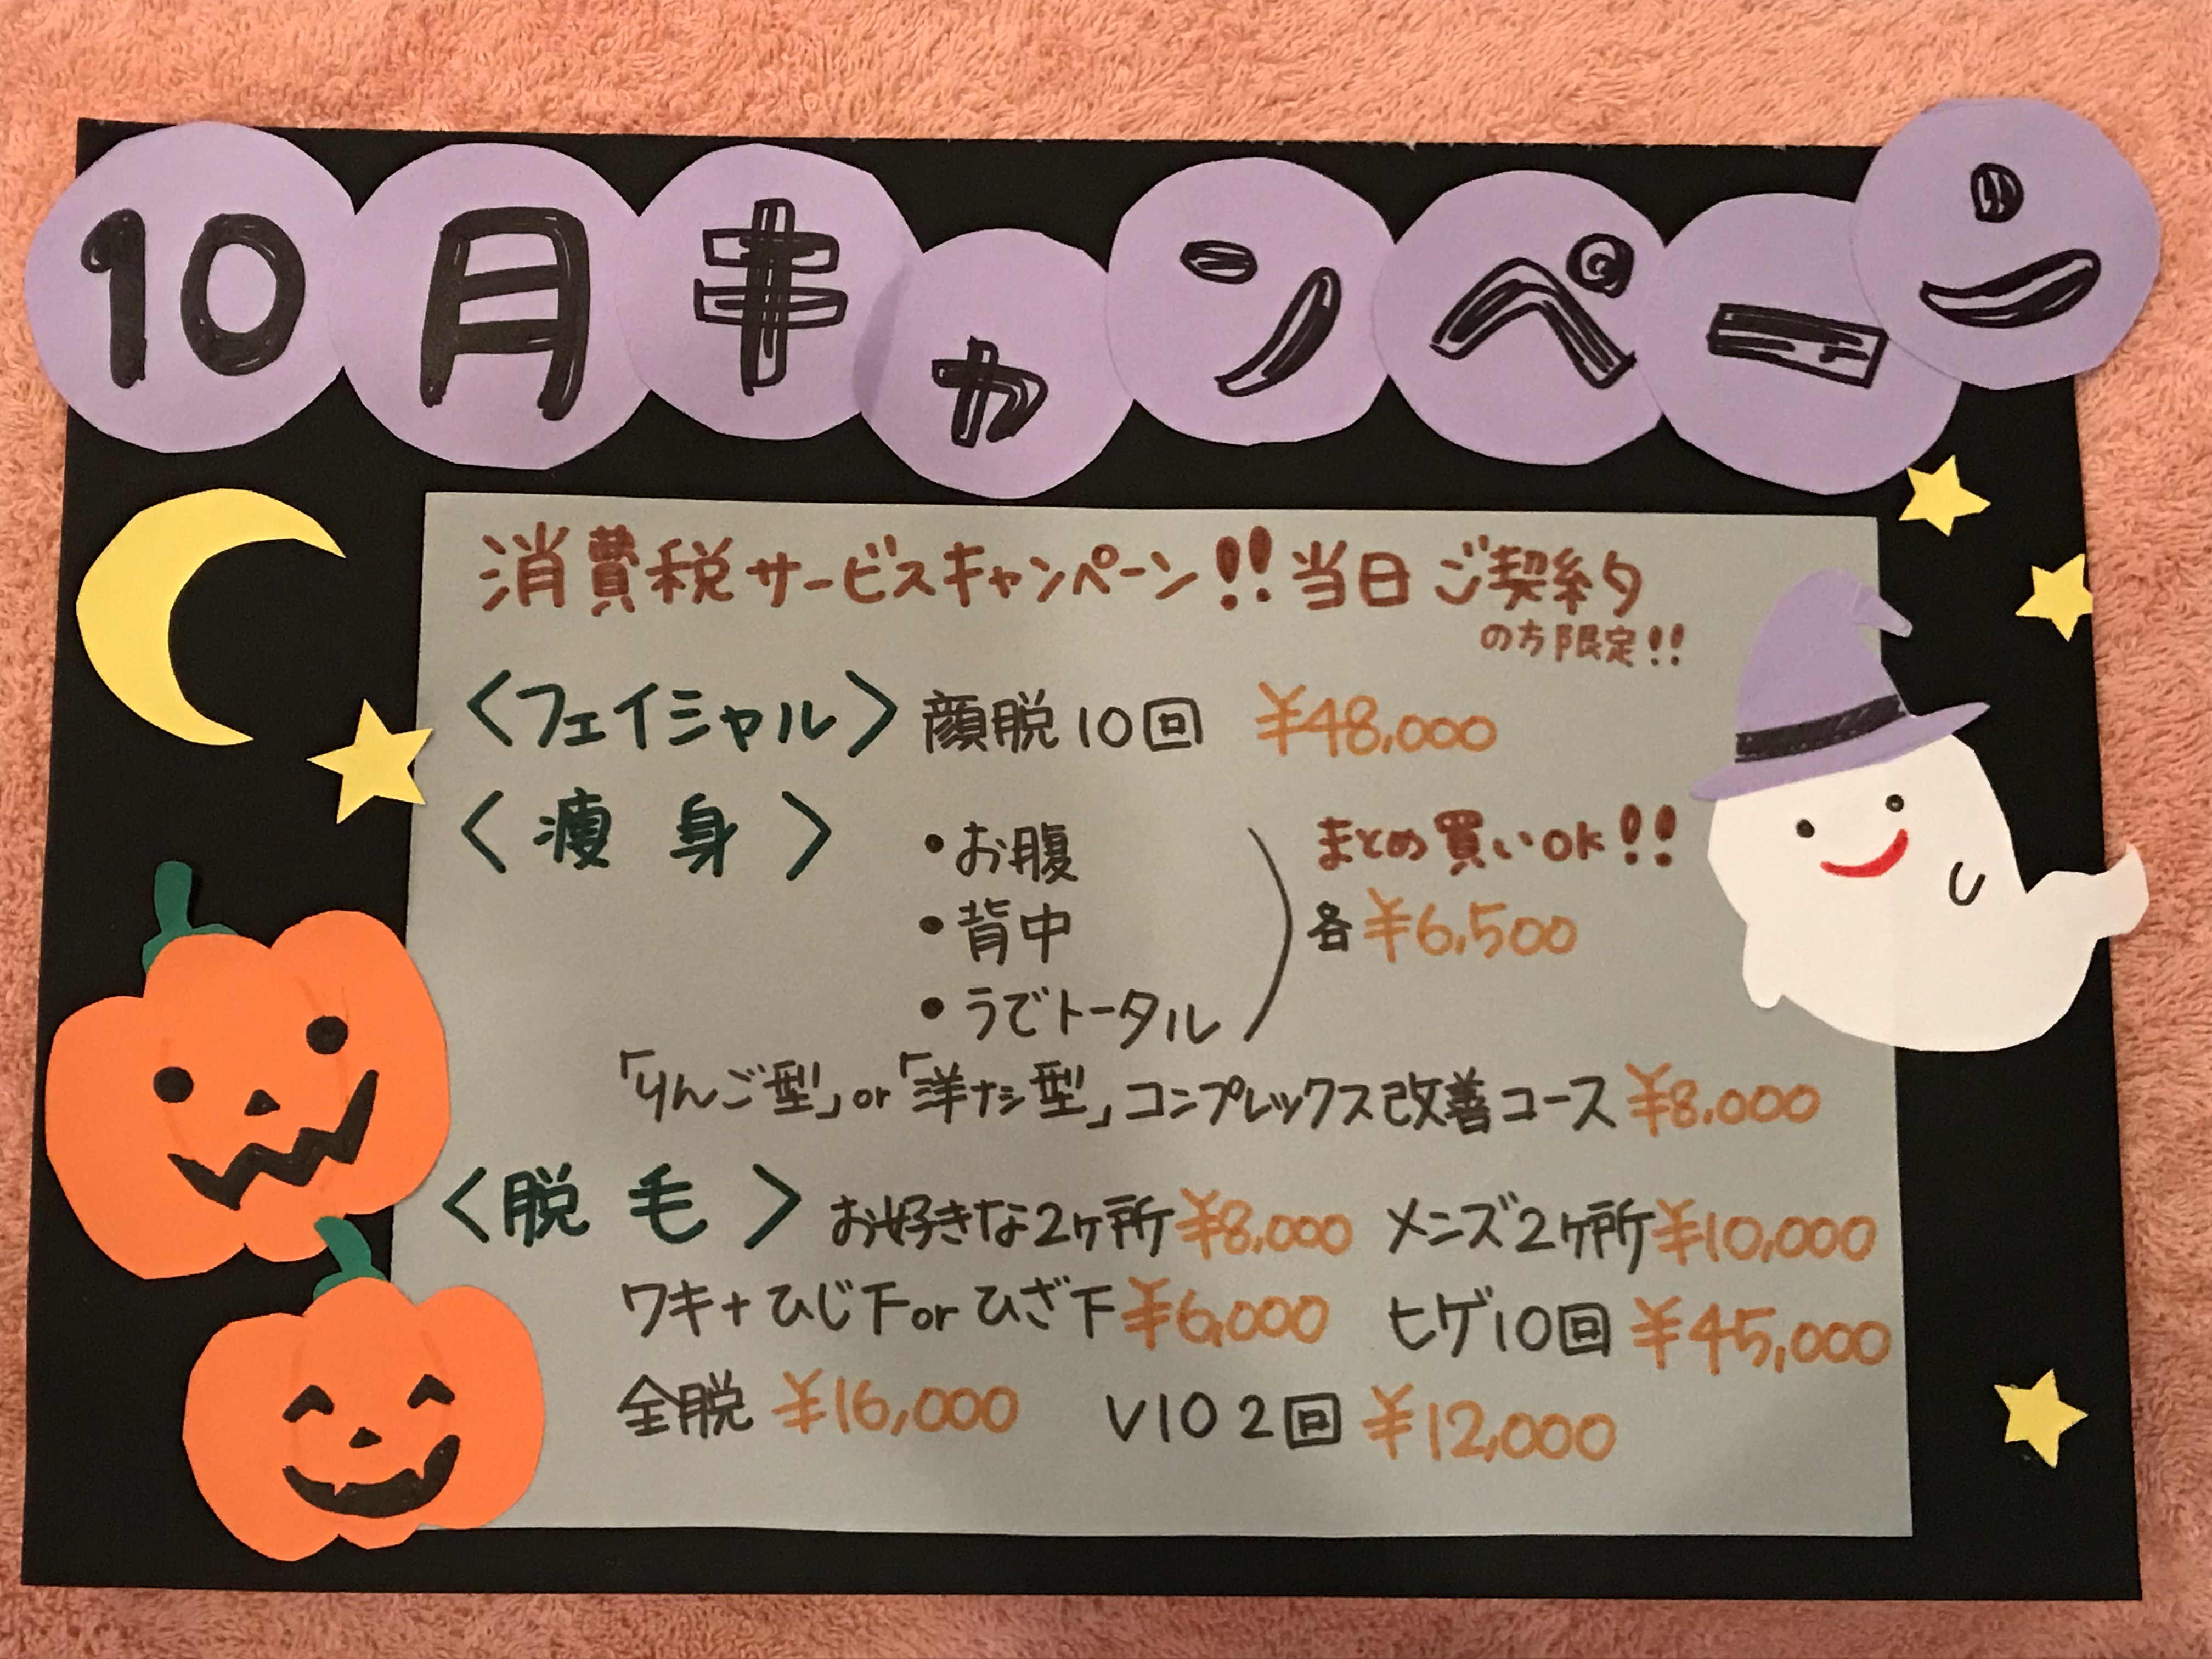 10月キャンペーン
消費税サービスキャンペーン!!当日ご契約
の方限定!!
<フェイシャル> 顔脱10回 ¥48,000
<痩身> ・お腹 まとめ買いOK!!
・背中 各¥6,500
・うでトータル
「りんご型」or「洋ナシ型」コンプレックス改善コース ¥8,000
<脱毛> お好きな2ヶ所¥8,000 メンズ2ヶ所¥10,000
ワキ+ひじ下orひざ下¥6,000 ヒゲ10回 ¥45,000
全脱 ¥16,000 VIO 2回 ¥12,000